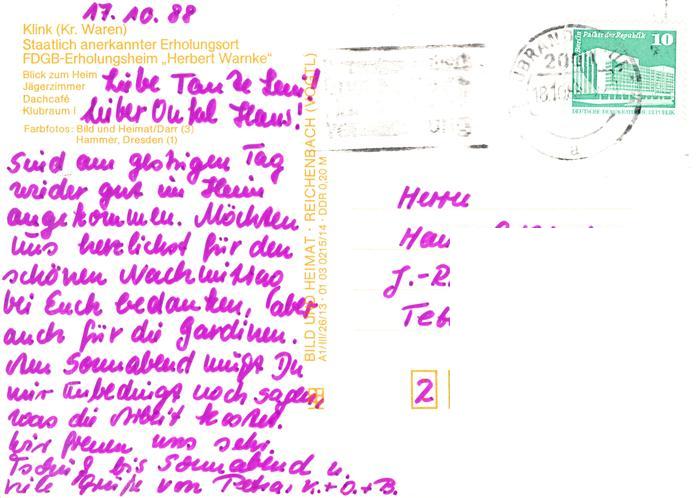 17.10.88
Klink (Kr. Waren)
Staatlich anerkannter Erholungsort
FDGB-Erholungsheim „Herbert Warnke“
Blick zum Heim
Jägerzimmer
Dachcafé
Klubraum
Farbfotos: Bild und Heimat/Darr (3)
Hammer, Dresden (1)
Liebe Tante
Lieber Onkel Hans!
Sind am gestrigen Tag
wieder gut im Heim
angekommen. Möchten
uns herzlichst für den
schönen Nachmittag
bei Euch bedanken, aber
auch für die Gardinen.
Am Sonnabend mußt Du
mir unbedingt noch sagen,
was die Arbeit kostet.
Wir freuen uns sehr.
Tschüß bis Sonnabend u.
viele Grüße von Petra, K. + O. + B.
BILD UND HEIMAT · REICHENBACH (VOGTL)
A1/III/26/13 · 01 03 0215/14 · DDR 0,20 M
Berlin Palast der Republik
10
DEUTSCHE DEMOKRATISCHE REPUBLIK
UBRAN
20
18.10.88
a
Herrn
Han
J.-R.
Teb
2